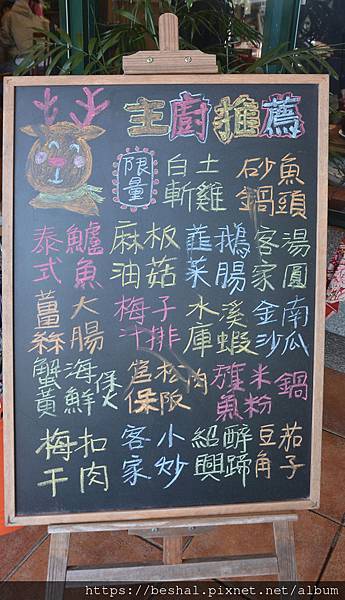 主廚推薦
限量
白斬土雞
砂鍋魚頭
泰式鱸魚
麻油板菇
韮菜鵝腸
客家湯圓
薑絲大腸
梅汁子排
水庫溪蝦
金沙南瓜
蟹黃海鮮煲
保松阪肉
旗魚米粉鍋
梅干扣肉
客家小炒
紹興醉蹄
豆角茄子
https://besha.pixnet.net/album